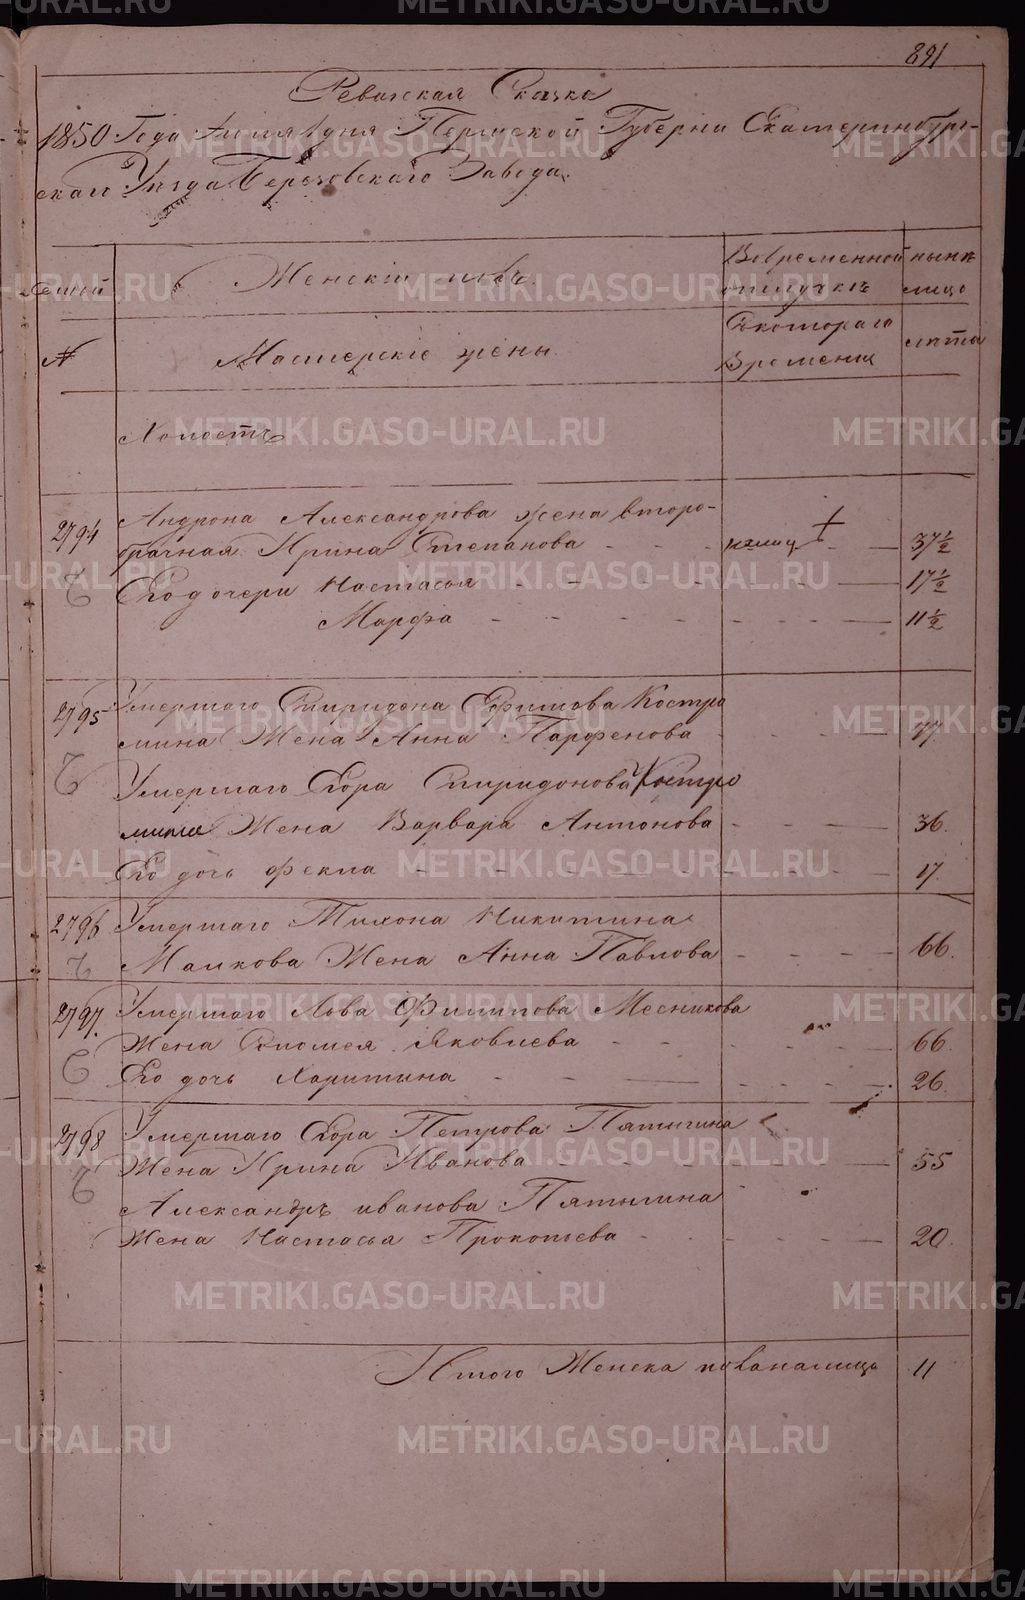 891
Ревизская Сказка
1850 Года дня Пермской Губернии Екатеринбург-
скаго Уезда Березовскаго Завода.
Семей
Женский полъ.
Вовременной
отлучкѣ
нынѣ
лицо
№
Мастерские жены.
Съкотораго
Времени
лѣта
Холостъ
2794
Андрона Александрова жена второ-
брачная Ирина Степанова - - - + - 37½
Его дочери Настасья - - - 17½
Марфа - - - 11½
2795
Умершаго Спиридона Ефимова Костро
мина Жена Анна Парфенова - - - 77.
Умершаго Егора Спиридонова Костро
мина Жена Варвара Антонова - - - 36.
Его дочь Фекла - - - 17.
2796
Умершаго Тихона Никитина
Малкова Жена Анна Павлова - - - 66.
2797.
Умершаго Льва Филипова Месникова
Жена Соломея Яковлева - - - 66.
Его дочь Харитина - - - 26.
2798
Умершаго Егора Петрова Пятыгина
Жена Ирина Иванова - - - 55
Александръ иванова Пятыгина
Жена Настасья Прокопьева - - - 20.
Итого Женска пола налицо 11
METRIKI.GASO-URAL.RU